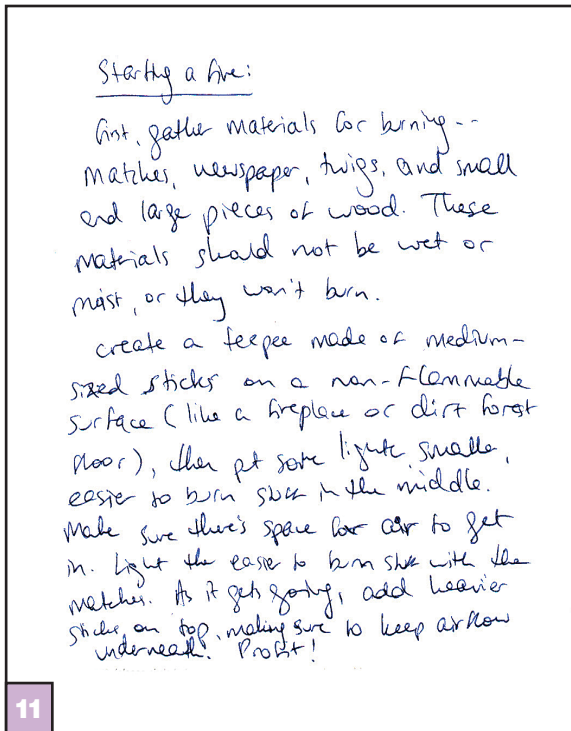 Starting a fire:
First, gather materials for burning--
matches, newspaper, twigs, and small
and large pieces of wood. These
materials should not be wet or
moist, or they won't burn.
create a teepee made of medium-
sized sticks on a non-flammable
surface (like a fireplace or dirt forest
floor), then put some lighter, smaller,
easier to burn stuff in the middle.
Make sure there's space for air to get
in. Light the easier to burn stuff with the
matches. As it gets going, add heavier
sticks on top, making sure to keep airflow
underneath. Profit!
11